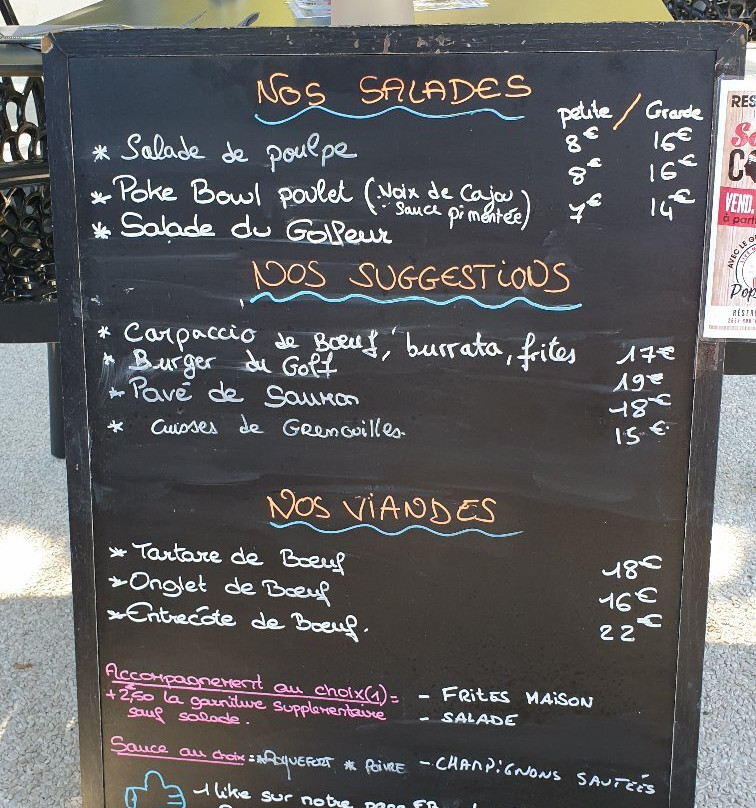 NOS SALADES
petite / Grande
* Salade de poulpe 8€ 16€
* Poke Bowl poulet (Noix de Cajou 8€ 16€
Sauce pimentée)
* Salade du Golfeur 7€ 14€
NOS SUGGESTIONS
* Carpaccio de Bœuf, burrata, frites 17€
* Burger du Golf 19€
* Pavé de Saumon 18€
* Cuisses de Grenouilles 15€
NOS VIANDES
* Tartare de Bœuf 18€
* Onglet de Bœuf 16€
* Entrecôte de Bœuf. 22€
Accompagnement au choix(1) = - FRITES MAISON
+2,50 la garniture supplémentaire - SALADE
sauf salade.
Sauce au choix = * ROQUEFORT * POIVRE - CHAMPIGNONS SAUTÉES
1 like sur notre page FB
VEND.
à part
AVEC LE
Pop